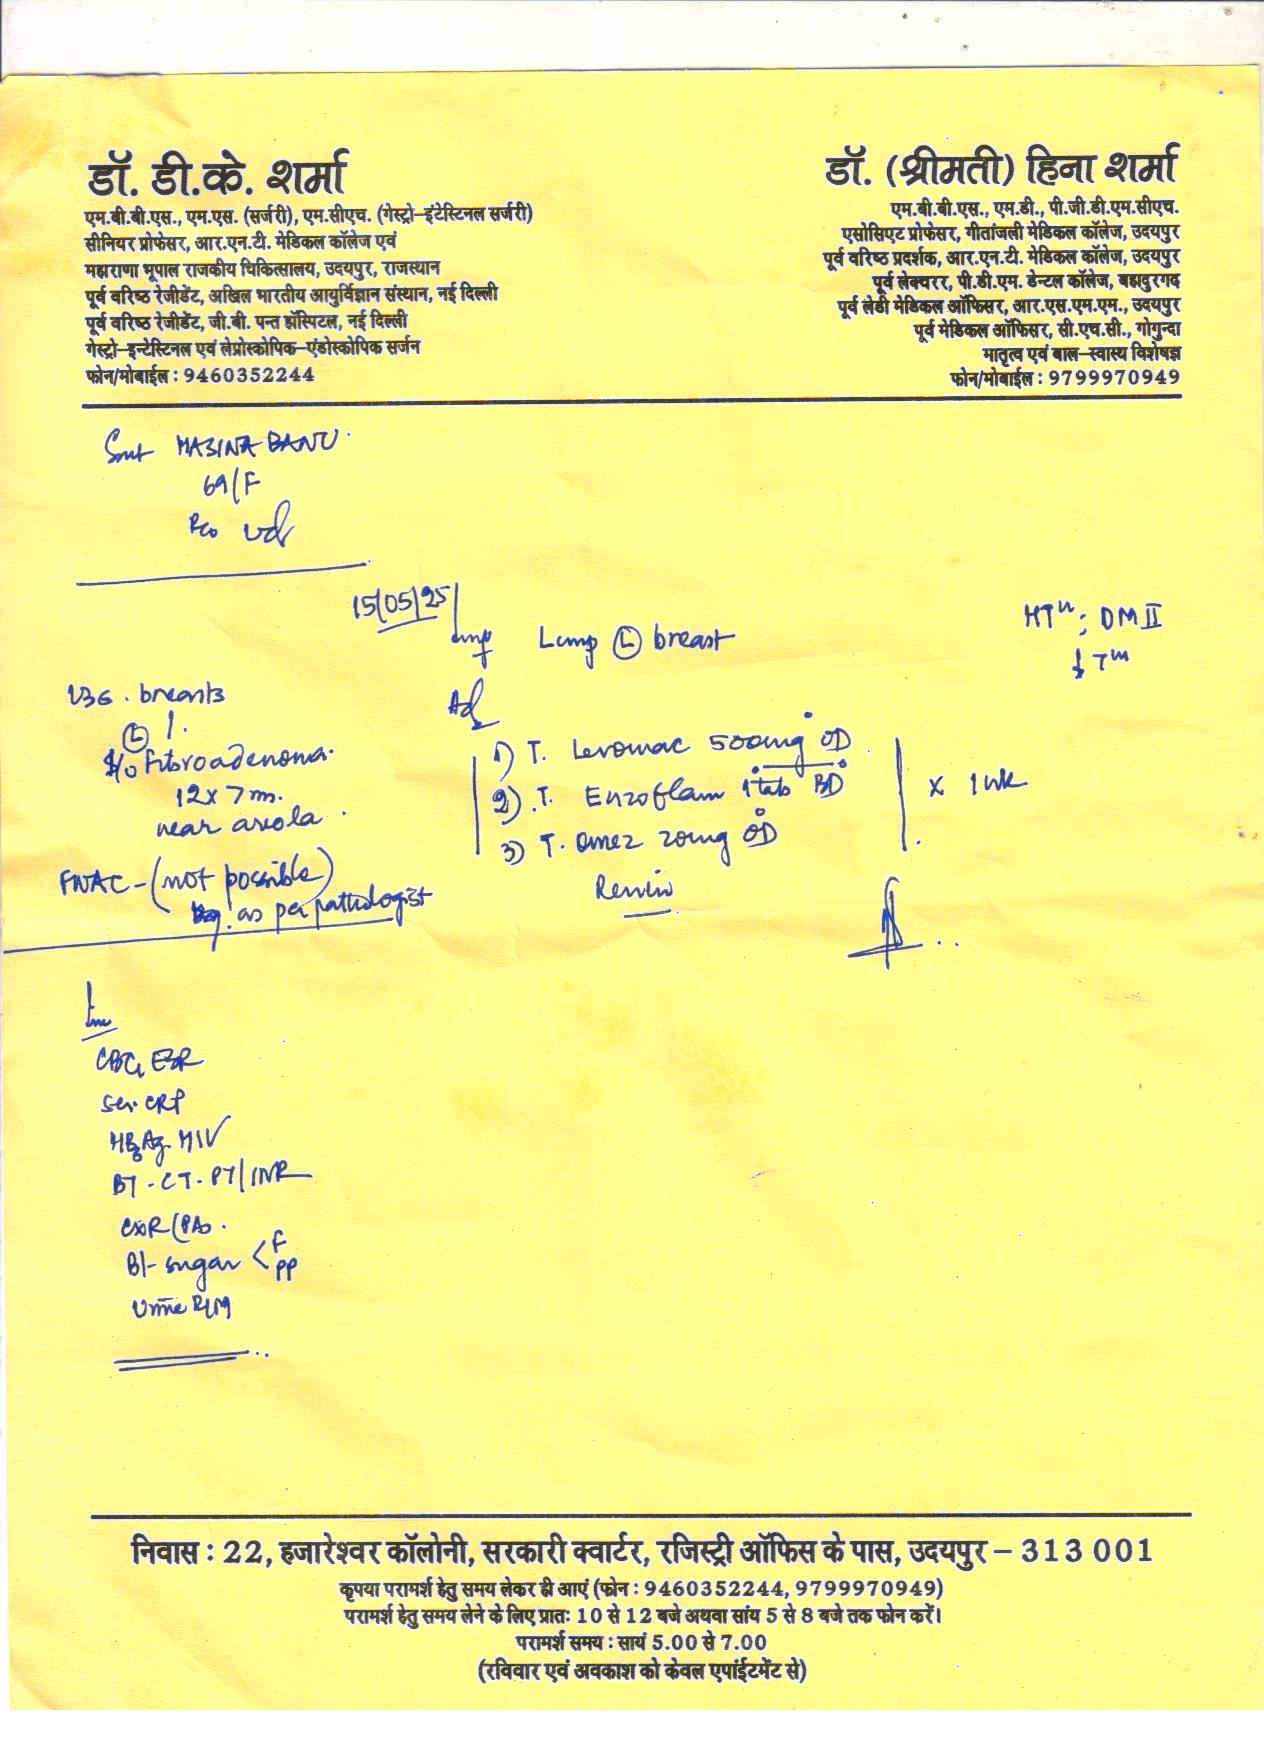 डॉ. डी.के. शर्मा
एम.बी.बी.एस., एम.एस. (सर्जरी), एम.सीएच. (गेस्ट्रो-इंटेस्टिनल सर्जरी)
सीनियर प्रोफेसर, आर.एन.टी. मेडिकल कॉलेज एवं
महाराणा भूपाल राजकीय चिकित्सालय, उदयपुर, राजस्थान
पूर्व वरिष्ठ रेजीडेंट, अखिल भारतीय आयुर्विज्ञान संस्थान, नई दिल्ली
पूर्व वरिष्ठ रेजीडेंट, जी.बी. पन्त हॉस्पिटल, नई दिल्ली
गेस्ट्रो-इन्टेस्टिनल एवं लेप्रोस्कोपिक-एंडोस्कोपिक सर्जन
फोन/मोबाईल : 9460352244
डॉ. (श्रीमती) हिना शर्मा
एम.बी.बी.एस., एम.डी., पी.जी.डी.एम.सीएच.
एसोसिएट प्रोफेसर, गीतांजली मेडिकल कॉलेज, उदयपुर
पूर्व वरिष्ठ प्रदर्शक, आर.एन.टी. मेडिकल कॉलेज, उदयपुर
पूर्व लेक्चरर, पी.डी.एम. डेन्टल कॉलेज, बहादुरगढ़
पूर्व लेडी मेडिकल ऑफिसर, आर.एस.एम.एम., उदयपुर
पूर्व मेडिकल ऑफिसर, सी.एच.सी., गोगुन्दा
मातृत्व एवं बाल-स्वास्थ्य विशेषज्ञ
फोन/मोबाईल : 9799970949
Smt HASINA BANU.
69/F
15/05/25
Lump Ⓛ breast
HTⁿ; DM II
USG. breasts
Ⓛ
s/o Fibroadenoma.
12 x 7 m.
near areola.
FNAC - (not possible)
as per pathologist
Ad
1) T. Levomac 500mg OD
2) T. Enzoflam 1 tab BD
3) T. Omez 20mg OD
x 1 wk
Review
Inv
CBC, ESR
Ser. CRP
HBsAg. HIV
BT - CT - PT/INR
CXR (PA).
Bl- sugar < F
PP
Urine R/M
निवास : 22, हजारेश्वर कॉलोनी, सरकारी क्वार्टर, रजिस्ट्री ऑफिस के पास, उदयपुर – 313 001
कृपया परामर्श हेतु समय लेकर ही आएं (फोन : 9460352244, 9799970949)
परामर्श हेतु समय लेने के लिए प्रातः 10 से 12 बजे अथवा सांय 5 से 8 बजे तक फोन करें।
परामर्श समय : सायं 5.00 से 7.00
(रविवार एवं अवकाश को केवल एपांईटमेंट से)